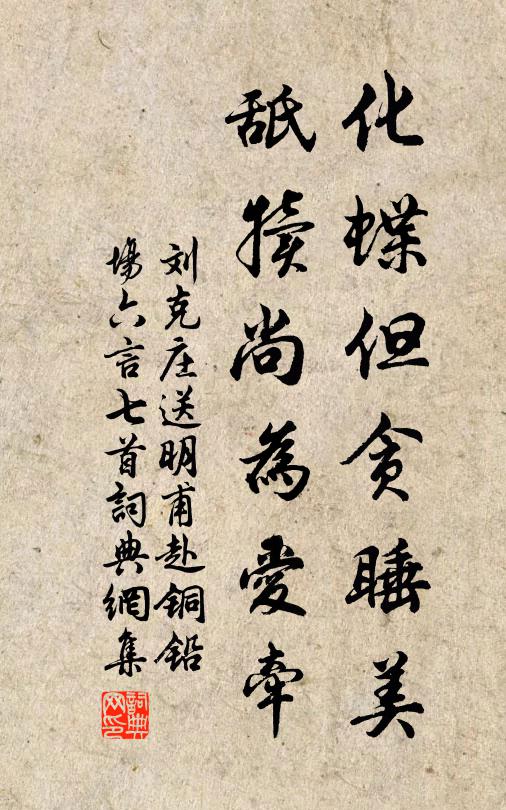 化蝶但贪睡美
舐犊尚為愛牵
刘克庄送明甫赴铜铅
場六言七首詞典網集
詞典网印